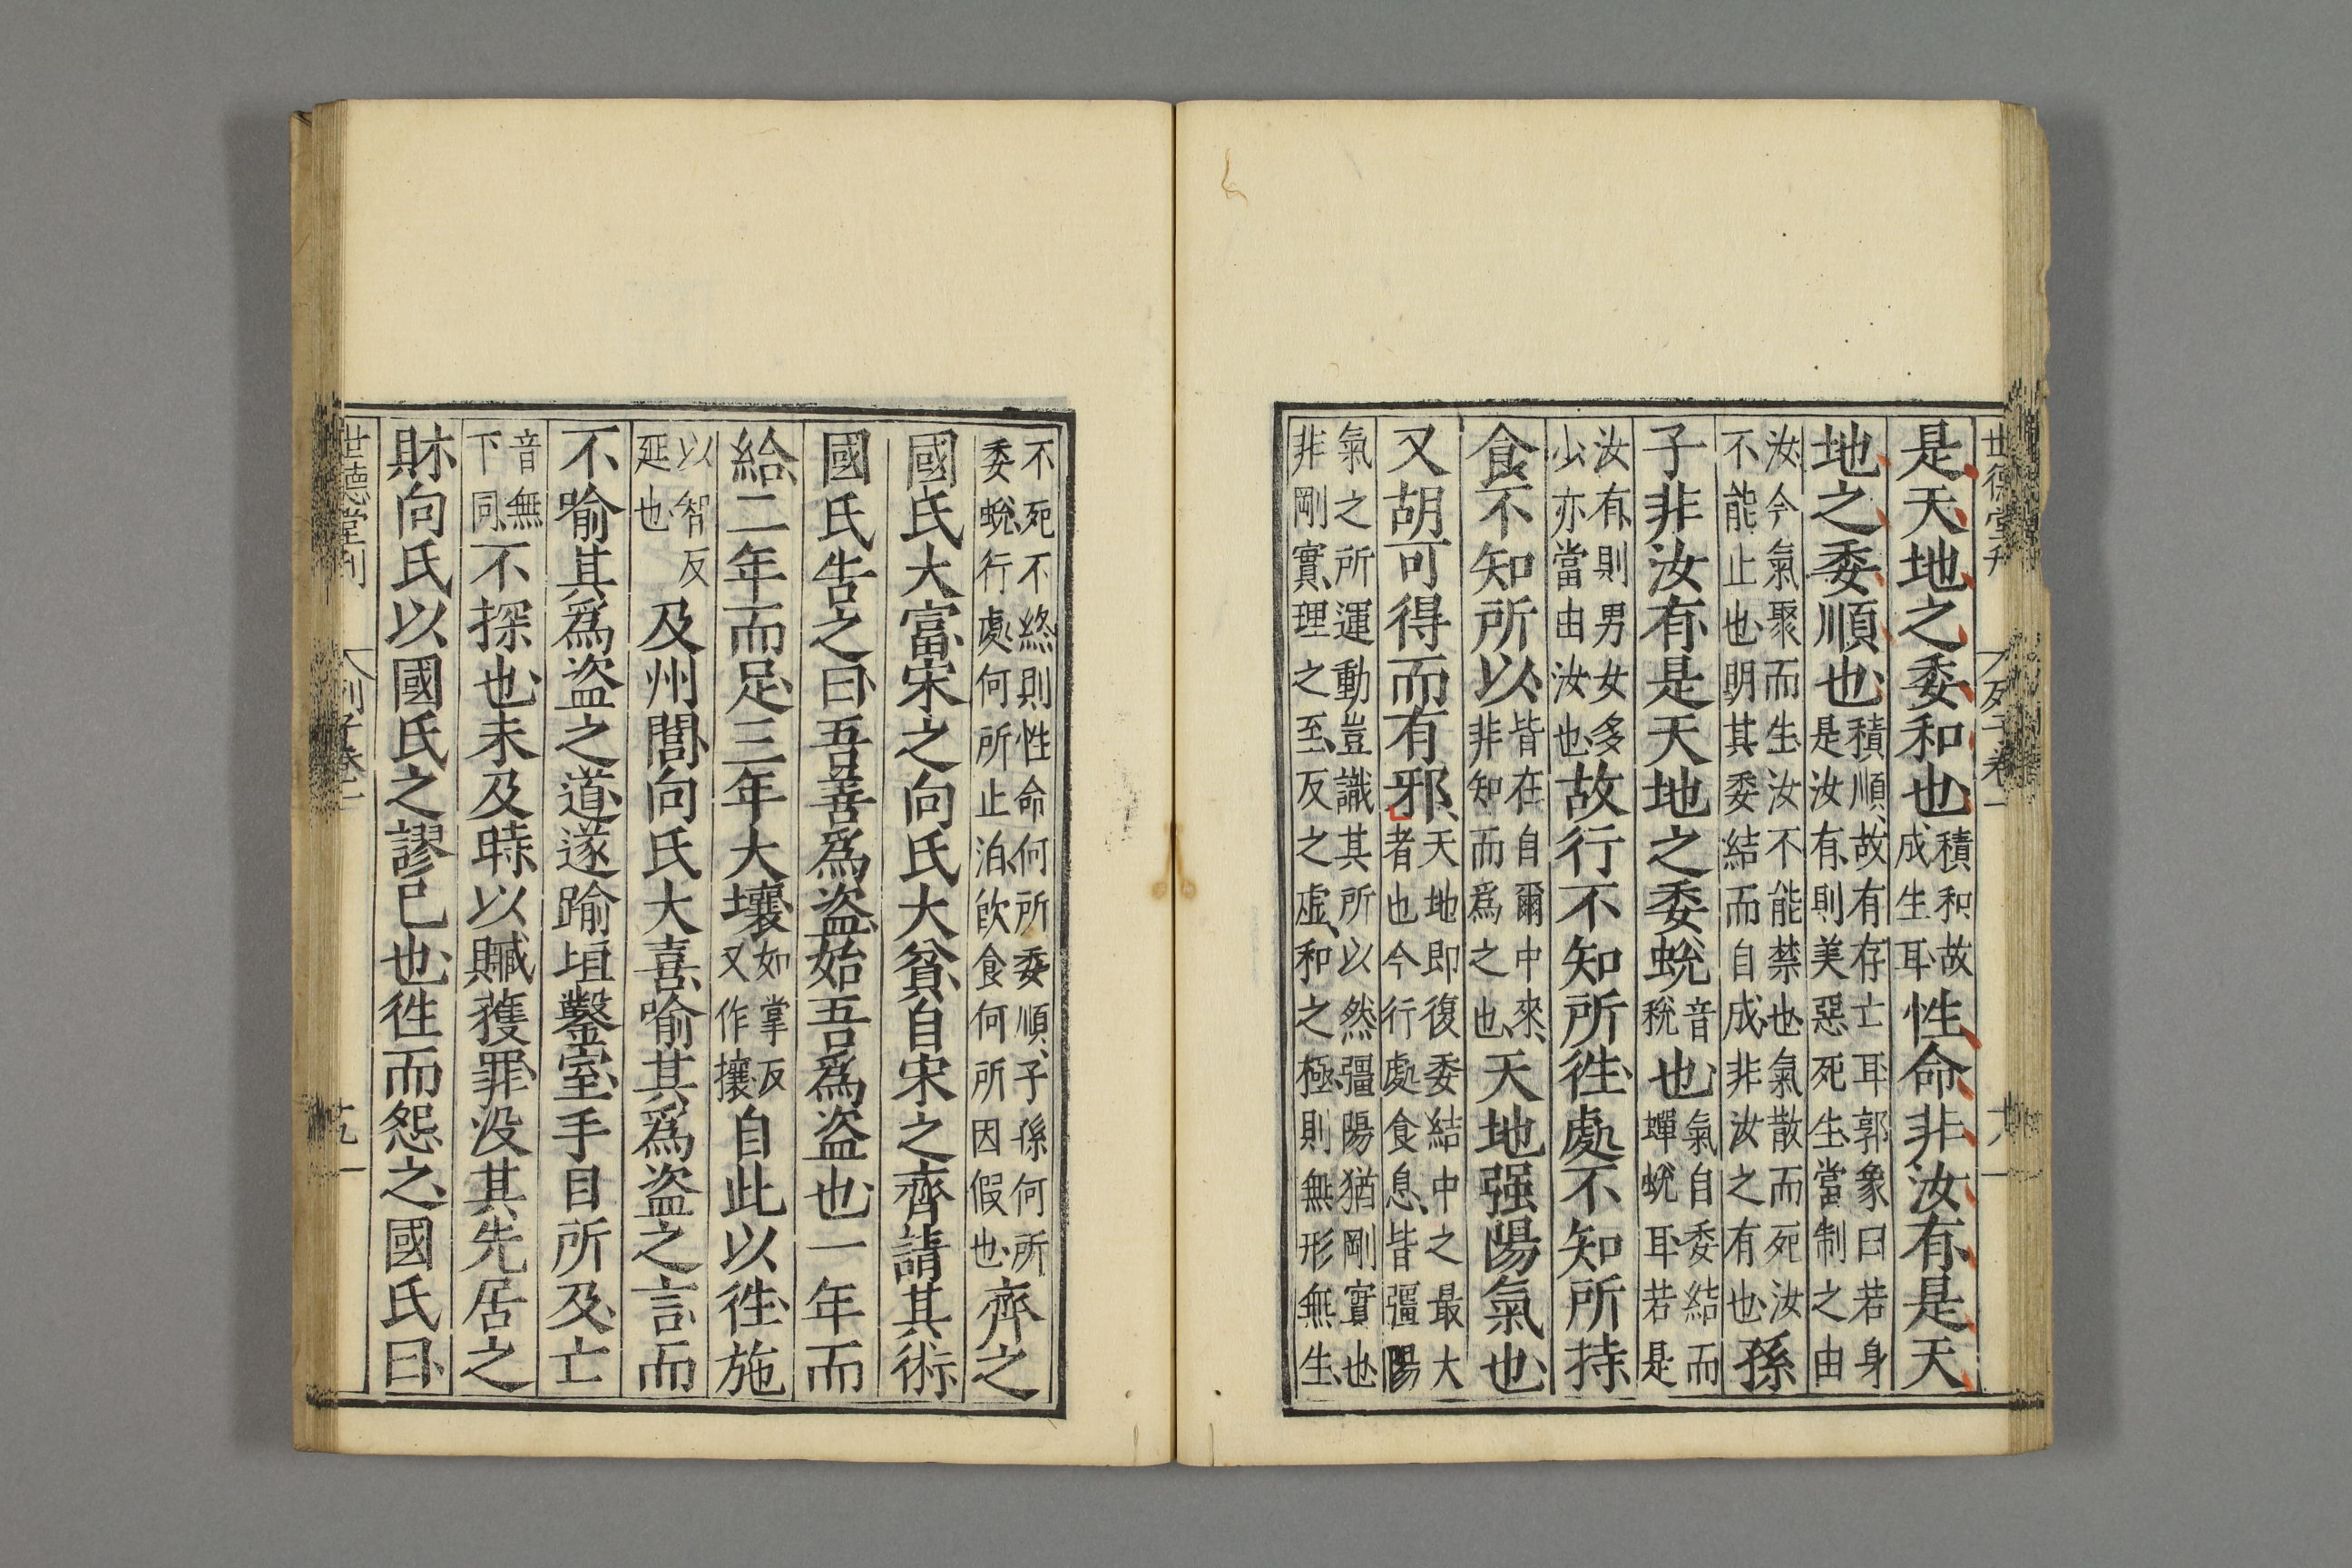 世德堂刊
列子卷一
十八
是天地之委和也積和故成生耳性命非汝有是天
地之委順也積順故有存亡耳郭象曰若身是汝有則美惡死生當制之由
汝今氣聚而生汝不能禁也氣散而死汝不能止也明其委結而自成非汝之有也孫
子非汝有是天地之委蛻音稅也氣自委結而蟬蛻耳若是
汝有則男女多少亦當由汝也故行不知所徃處不知所持
食不知所以皆在自爾中來非知而爲之也天地强陽氣也
又胡可得而有邪天地即復委結中之最大者也今行處食息皆彊陽
氣之所運動豈識其所以然彊陽猶剛實也非剛實理之至反之虛和之極則無形無生
不死不終則性命何所委順子孫何所委蛻行處何所止泊飲食何所因假也齊之
國氏大富宋之向氏大貧自宋之齊請其術
國氏告之曰吾善爲盗始吾爲盗也一年而
給二年而足三年大壤如掌反又作攘自此以徃施
以智反延也及州閭向氏大喜喻其爲盗之言而
不喻其爲盗之道遂踰垣鑿室手目所及亡
音無下同不探也未及時以贓獲罪没其先居之
財向氏以國氏之謬已也徃而怨之國氏曰
世德堂刊
列子卷一
十九